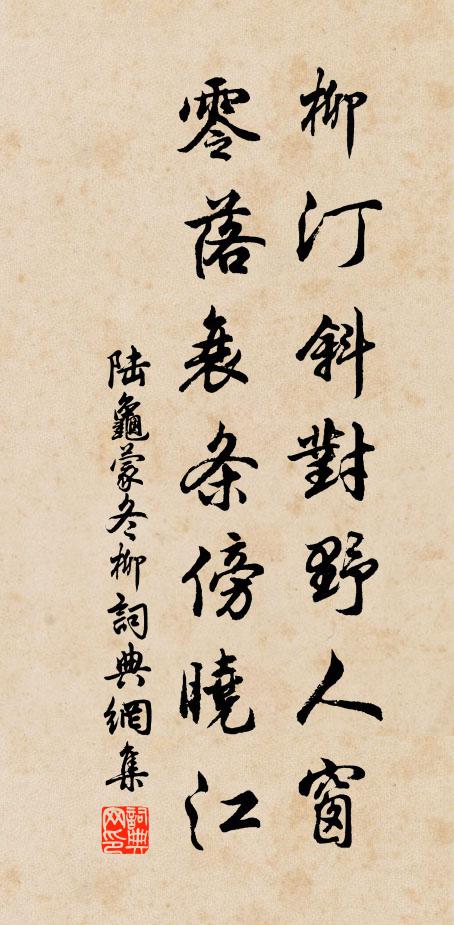 柳汀斜對野人窗
零落衰条傍曉江
陸龜蒙冬柳詞典網集
詞典網印